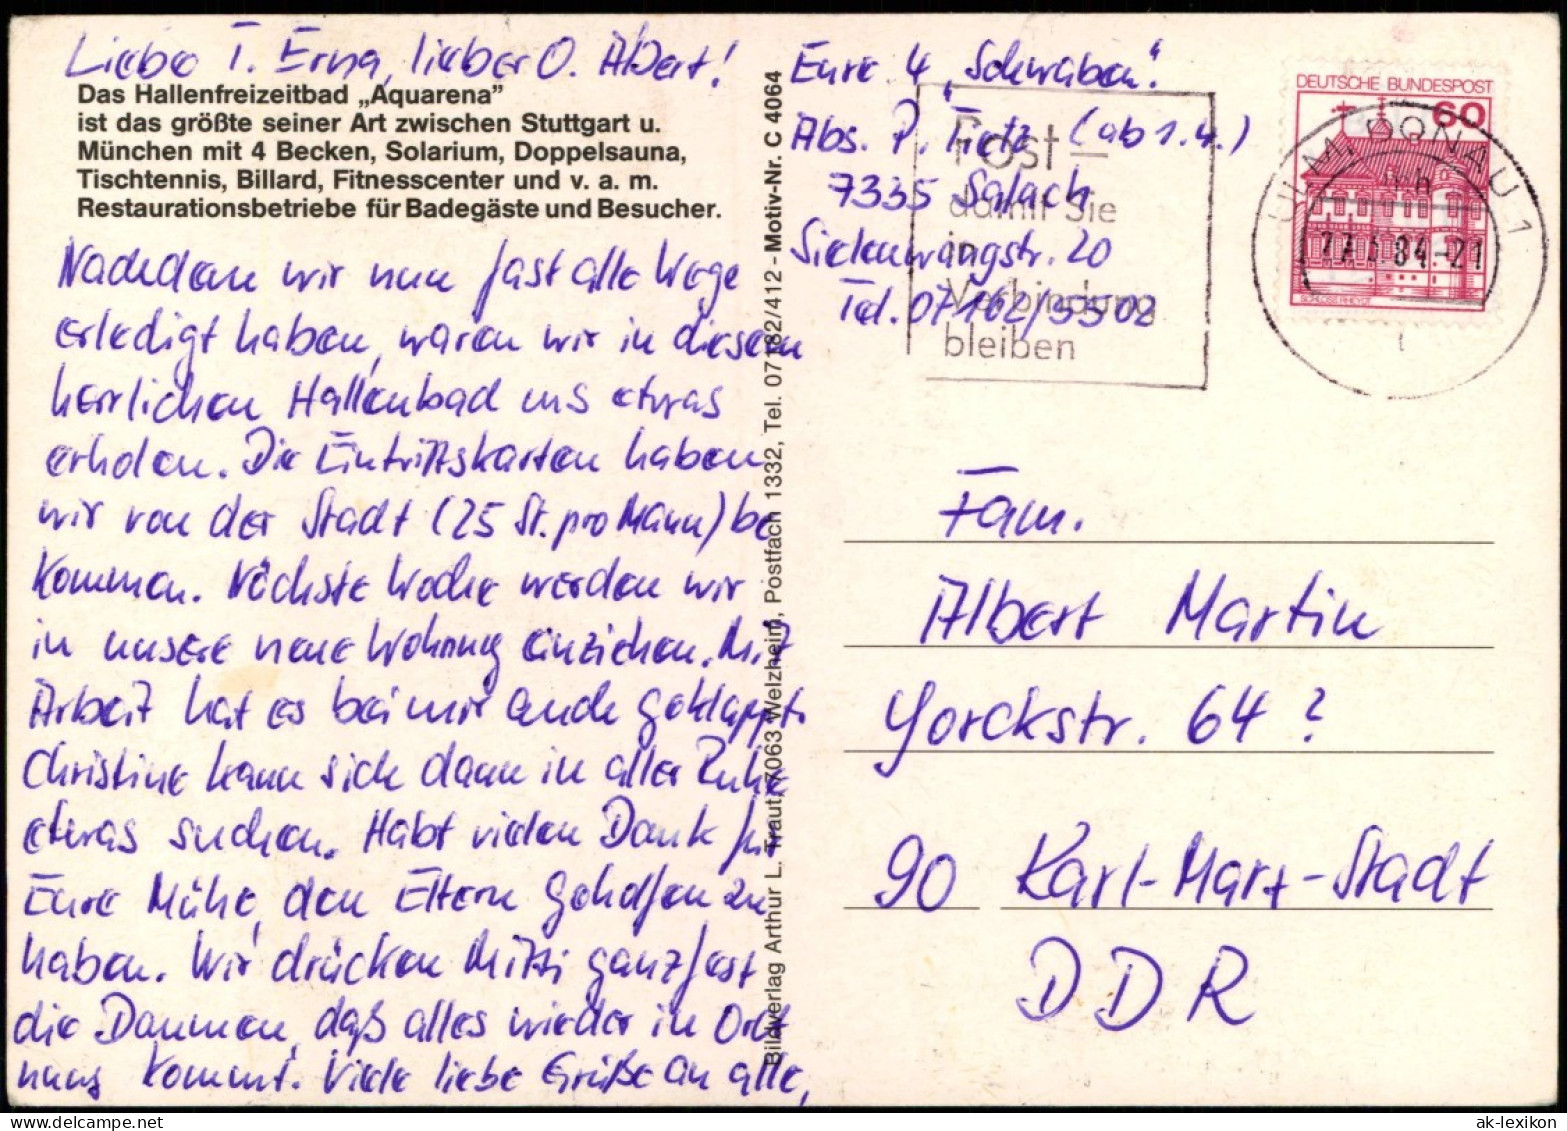 Liebe T. Erna, lieber O. Albert!
Das Hallenfreizeitbad „Aquarena”
ist das größte seiner Art zwischen Stuttgart u.
München mit 4 Becken, Solarium, Doppelsauna,
Tischtennis, Billard, Fitnesscenter und v. a. m.
Restaurationsbetriebe für Badegäste und Besucher.
Nachdem wir nun fast alle Wege
erledigt haben, waren wir in diesem
herrlichen Hallenbad uns etwas
erholen. Die Eintrittskarten haben
wir von der Stadt (25 St. pro Mann) be
kommen. Nächste Woche werden wir
in unsere neue Wohnung einziehen. Mit
Arbeit hat es bei mir auch geklappt.
Christine kann sich dann in aller Ruhe
etwas suchen. Habt vielen Dank für
Eure Mühe, den Eltern geholfen zu
haben. Wir drücken Mutti ganz fest
die Daumen, daß alles wieder in Ord
nung kommt. Viele liebe Grüße an alle,
Bildverlag Arthur L. Traut, 7063 Welzheim, Postfach 1332, Tel. 07182/412 - Motiv-Nr. C 4064
Eure 4 „Schwaben“.
Abs. P. Tietz (ab 1.4.)
7335 Salach
Siedenwangstr. 20
Tel. 07162/5502
Post –
damit Sie
in
Verbindung
bleiben
DEUTSCHE BUNDESPOST
60
SCHLOSS RHEYDT
ULM, DONAU 1
mh
27.3.84-21
Fam.
Albert Martin
Yorckstr. 64 ?
90 Karl-Marx-Stadt
DDR
ak-lexikon